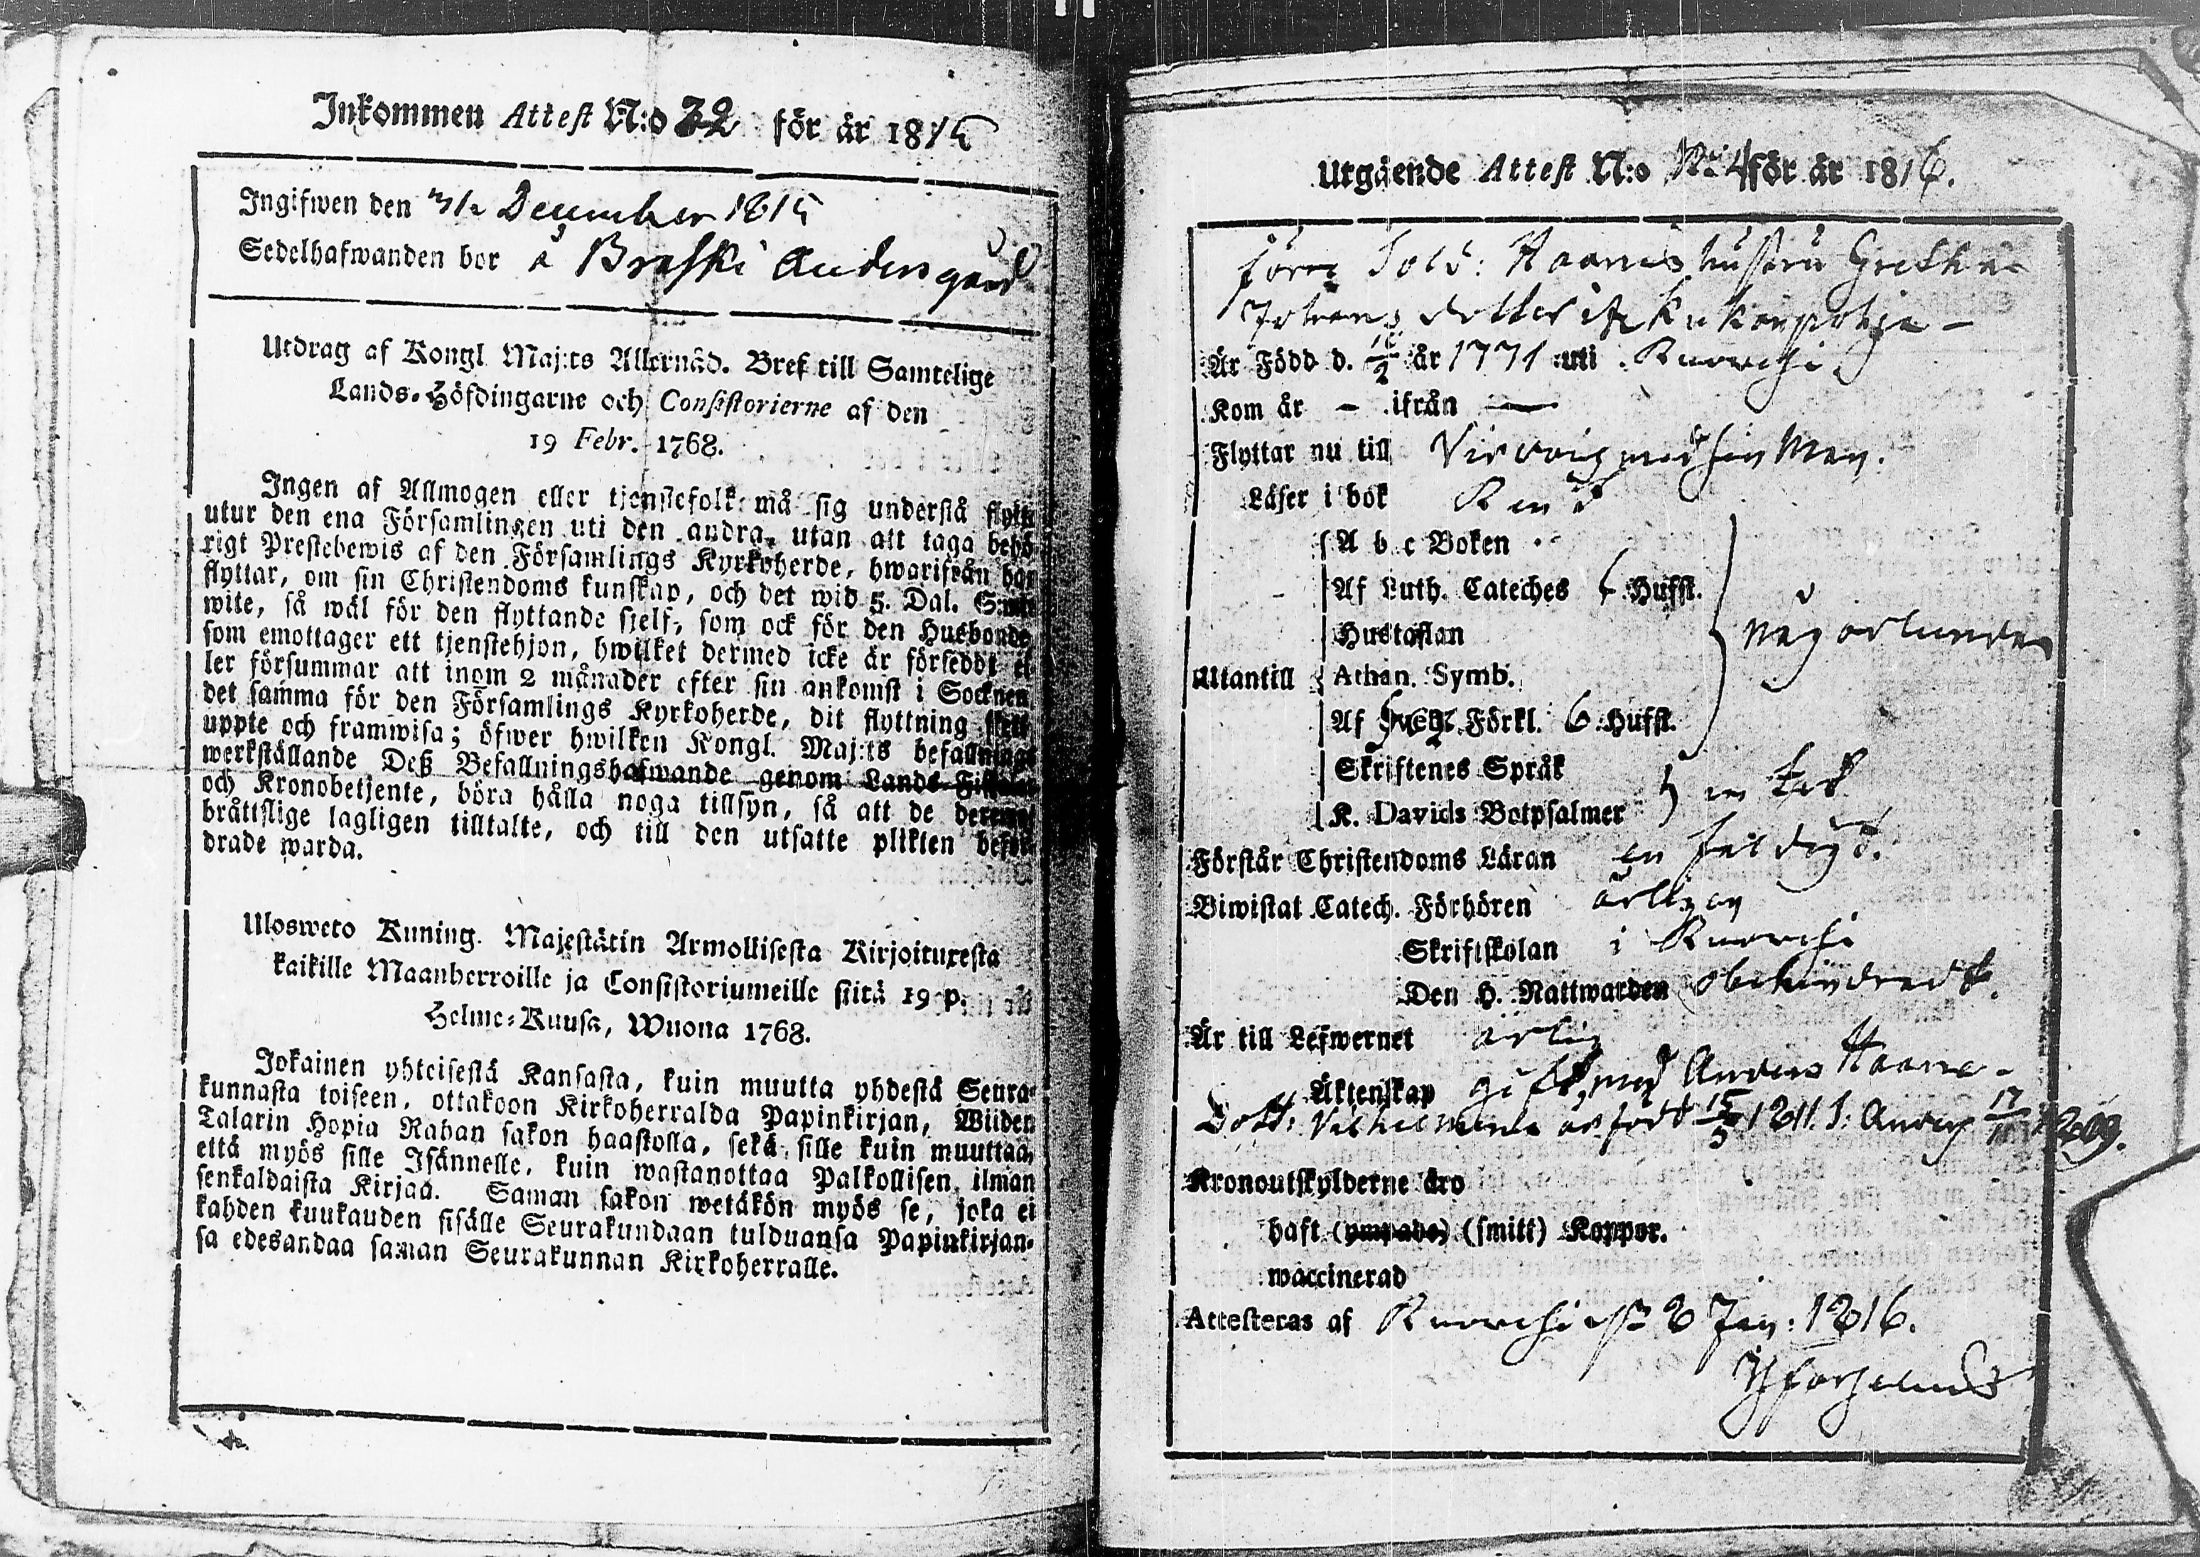 Inkommen Attest N:o 32 för år 1815
Ingifwen den 31 December 1815
Sedelhafwanden bor å Braski Anders gård
Utdrag af Kongl. Maj:ts Allernåd. Bref till Samtelige
Lands-Höfdingarne och Consistorierne af den
19 Febr. 1768.
Ingen af Allmogen eller tjenstefolk må sig understå flytta
utur den ena Församlingen uti den andra, utan att taga behö-
rigt Prestebewis af den Församlings Kyrkoherde, hwarifrån han
flyttar, om sin Christendoms kunskap, och det wid 5. Dal. S:mts
wite, så wäl för den flyttande sjelf, som ock för den Husbonde,
som emottager ett tjenstehjon, hwilket dermed icke är försedd, el-
ler försummar att inom 2 månader efter sin ankomst i Socknen
det samma för den Församlings Kyrkoherde, dit flyttning skett
uppte och framwisa; öfwer hwilken Kongl. Maj:ts befallnings
werkställande Deß Befallningshafwande genom Lands-Fiskaler
och Kronobetjente, böra hålla noga tillsyn, så att de deremot
bråttslige lagligen tilltalte, och till den utsatte plikten beför-
drade warda.
Ulosweto Kuning. Majestätin Armollisesta Kirjoituxesta
kaikille Maanherroille ja Consistoriumeille siitä 19 p.
Helme-Kuusa, Wuona 1768.
Jokainen yhteisestä Kansasta, kuin muutta yhdestä Seura-
kunnasta toiseen, ottakoon Kirkoherralda Papinkirjan, Wiiden
Talarin Hopia Rahan sakon haastolla, sekä sille kuin muuttaa,
että myös sille Isännelle, kuin wastanottaa Palkollisen ilman
senkaldaista Kirjaa. Saman sakon wetäkön myös se, joka ei
kahden kuukauden sisälle Seurakundaan tulduansa Papinkirjan-
sa edesandaa saman Seurakunnan Kirkoherralle.
Utgående Attest N:o 4 för år 1816.
förre Sold: Haanes hustru Gretha
Johans dotter ifr.
Är Född d. år 1771 uti Kuorehi
Kom år – ifrån —
Flyttar nu till med sin Man.
Läser i bok Rent
A b c Boken
Af Luth. Cateches 6 Hufst.
Hustaflan någorlunda
Utantill Athan. Symb.
Af Sveb. Förkl. 6 Hufst.
Skriftenes Språk
K. Davids Botpsalmer intet
Förstår Christendoms Läran enfaldigt.
Biwistat Catech. Förhören årligen
Skriftskolan i Kuorehi
Den H. Nattwarden obehindradt.
Är till Lefwernet ärlig
Äktenskap gift med Anders Haane
Dott. Vilhelmina är född 15/5 1811. S: Anders 1809.
Kronoutskylderne äro
haft (ympade) (smitt) Koppor.
waccinerad
Attesteras af Kuorehi d. 2 Jan: 1816.